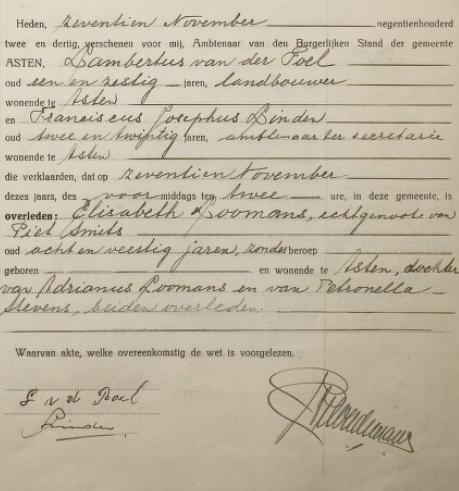 Heden, zeventien November negentienhonderd
twee en dertig, verschenen voor mij, Ambtenaar van den Burgerlijken Stand der gemeente
ASTEN, Lambertus van der Poel
oud een en zestig jaren, landbouwer
wonende te Asten
en Franciscus Josephus Linden
oud twee en twintig jaren, ambtenaar ter secretarie
wonende te Asten
die verklaarden, dat op zeventien November
dezes jaars, des voor middags ten twee ure, in deze gemeente, is
overleden: Elisabeth Loomans, echtgenoote van
Piet Smits
oud acht en veertig jaren, zonder beroep
geboren en wonende te Asten, dochter
van Adrianus Loomans en van Petronella
Stevens, beiden overleden.
Waarvan akte, welke overeenkomstig de wet is voorgelezen.
L v d Poel
Linden